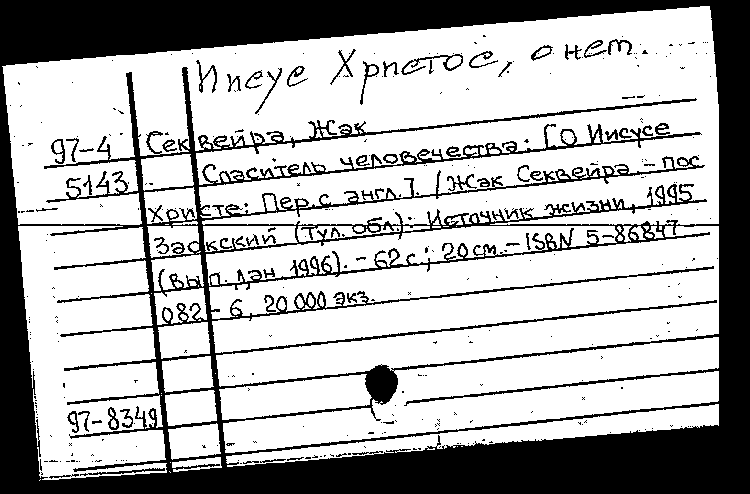 Иисус Христос, о нем.
97-4 Секвейра, Жак
5143 Спаситель человечества: [О Иисусе
Христе: Пер. с англ.]. / Жак Секвейра. - пос
Заокский (Тул. обл.): Источник жизни, 1995
(вып. дан. 1996). - 62 с.; 20 см. - ISBN 5-86847-
082-6, 20 000 экз.
97-8349